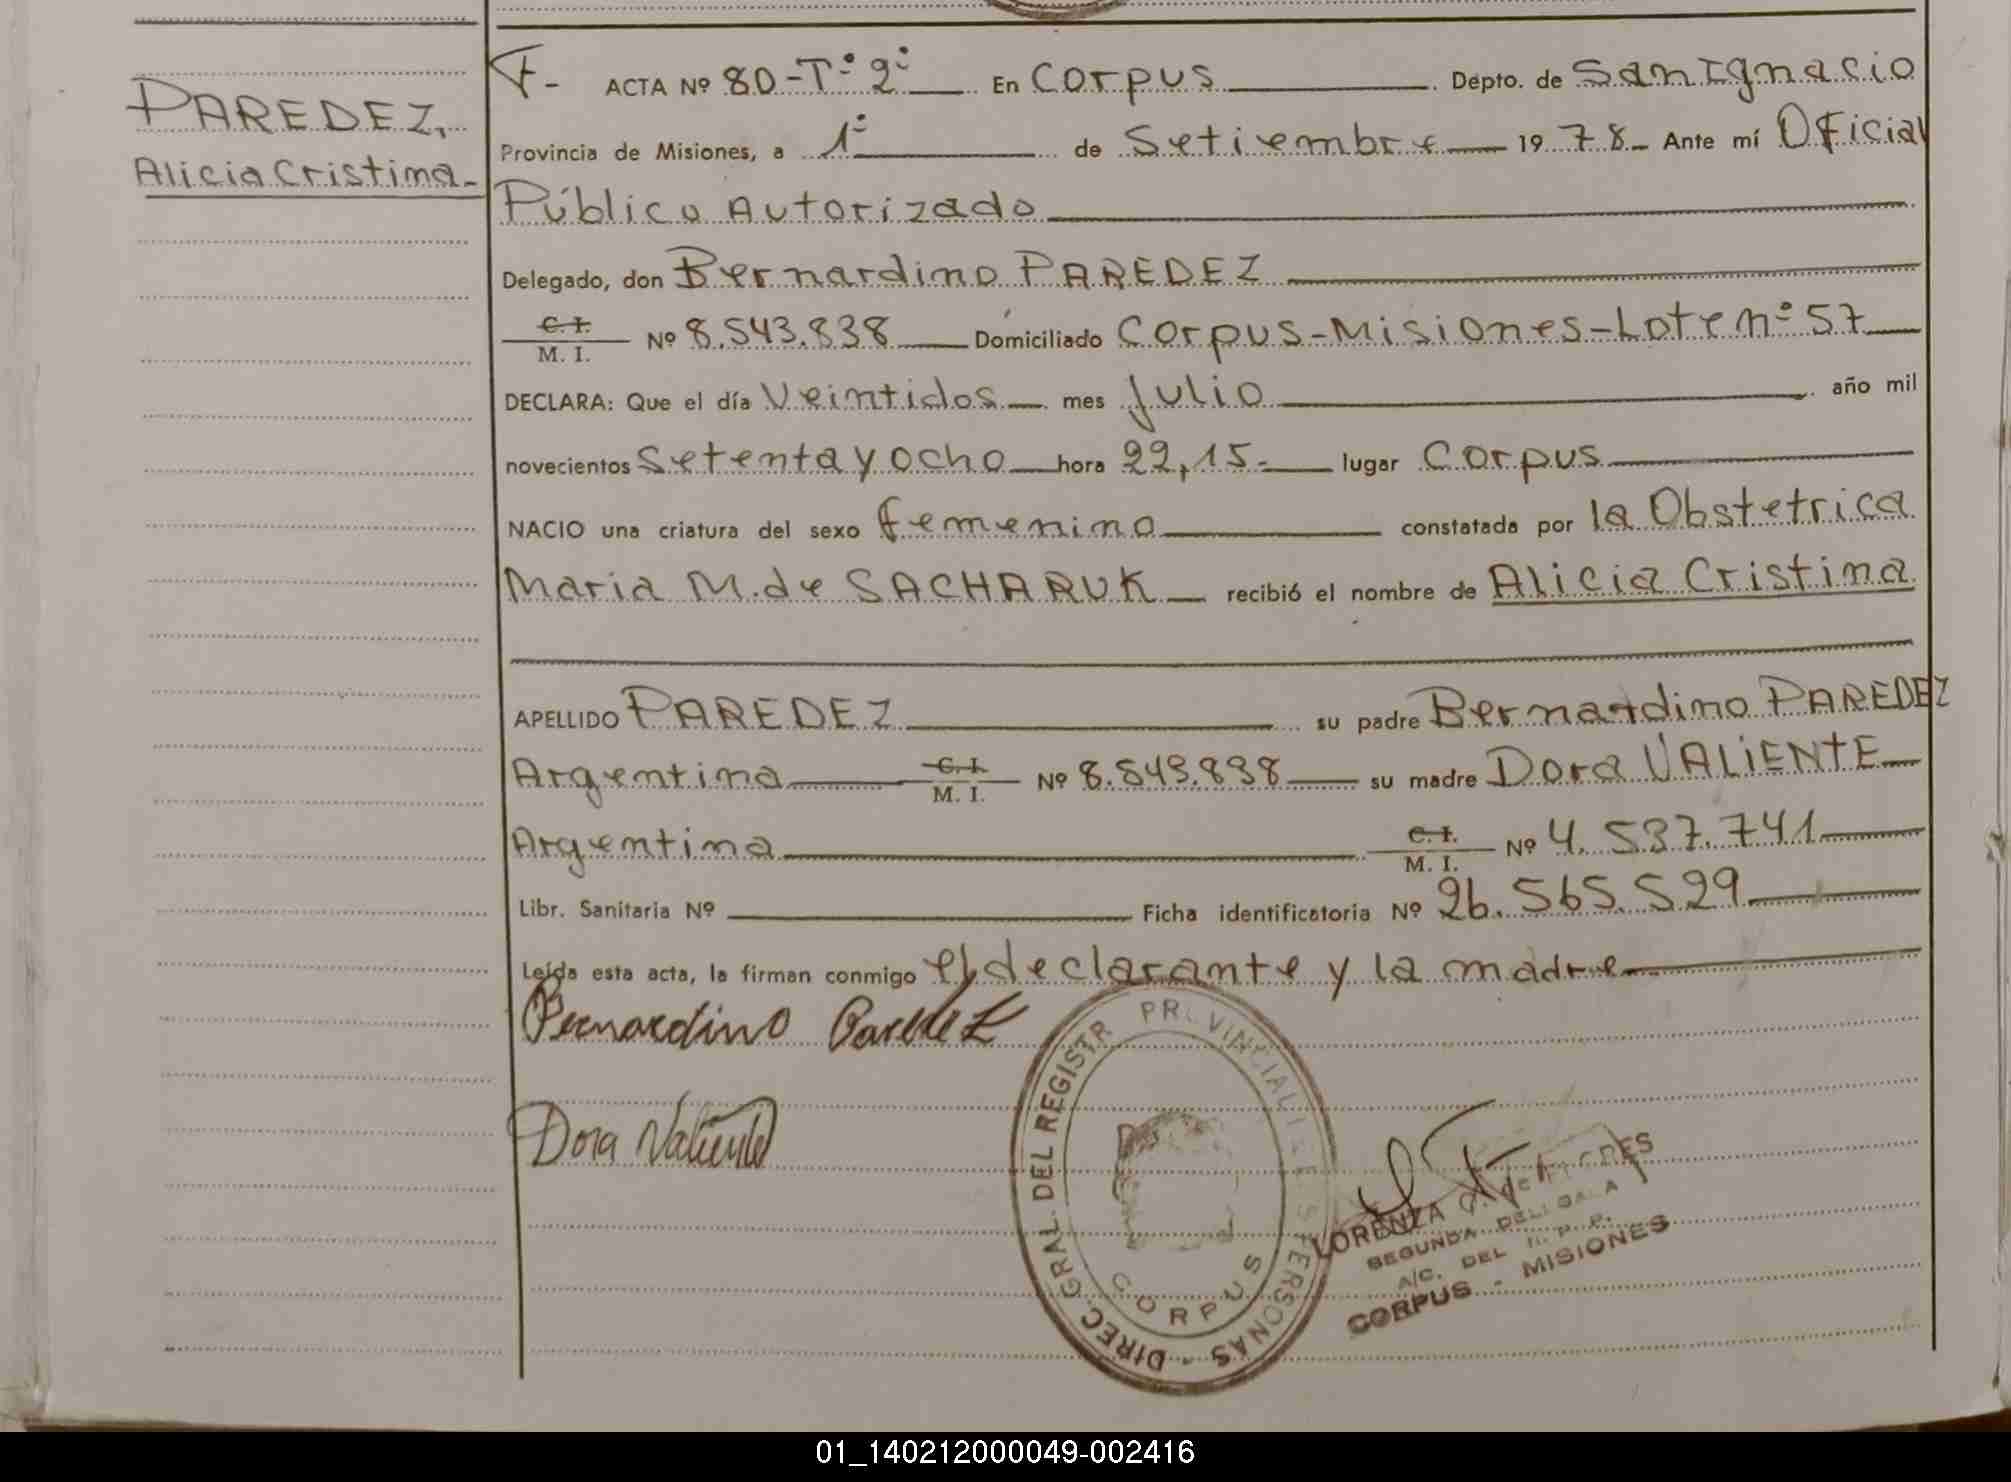 PAREDEZ,
Alicia Cristina-
F- ACTA Nº 80-Tº 2º En Corpus Depto. de San Ignacio
Provincia de Misiones, a 1º de Setiembre 1978- Ante mí Oficial
Público Autorizado
Delegado, don Bernardino PAREDEZ
C. I. / M. I. Nº 8.543.838 Domiciliado Corpus-Misiones-Lote nº 57
DECLARA: Que el día Veintidos mes Julio año mil
novecientos Setenta y ocho hora 22,15- lugar Corpus
NACIO una criatura del sexo femenino constatada por la Obstetrica
Maria M. de SACHARUK recibió el nombre de Alicia Cristina
APELLIDO PAREDEZ su padre Bernardino PAREDEZ
Argentina C. I. / M. I. Nº 8.543.838 su madre Dora VALIENTE
Argentina C. I. / M. I. Nº 4.537.741
Libr. Sanitaria Nº Ficha identificatoria Nº 26.565.529
Leída esta acta, la firman conmigo el declarante y la madre
Bernardino Paredez
Dora Valiente
DIREC. GRAL. DEL REGISTR PROVINCIAL DE PERSONAS -
CORPUS
LORENZA de FLORES
SEGUNDA DELEGADA
A/C. DEL R. P. P.
CORPUS - MISIONES
01_140212000049-002416